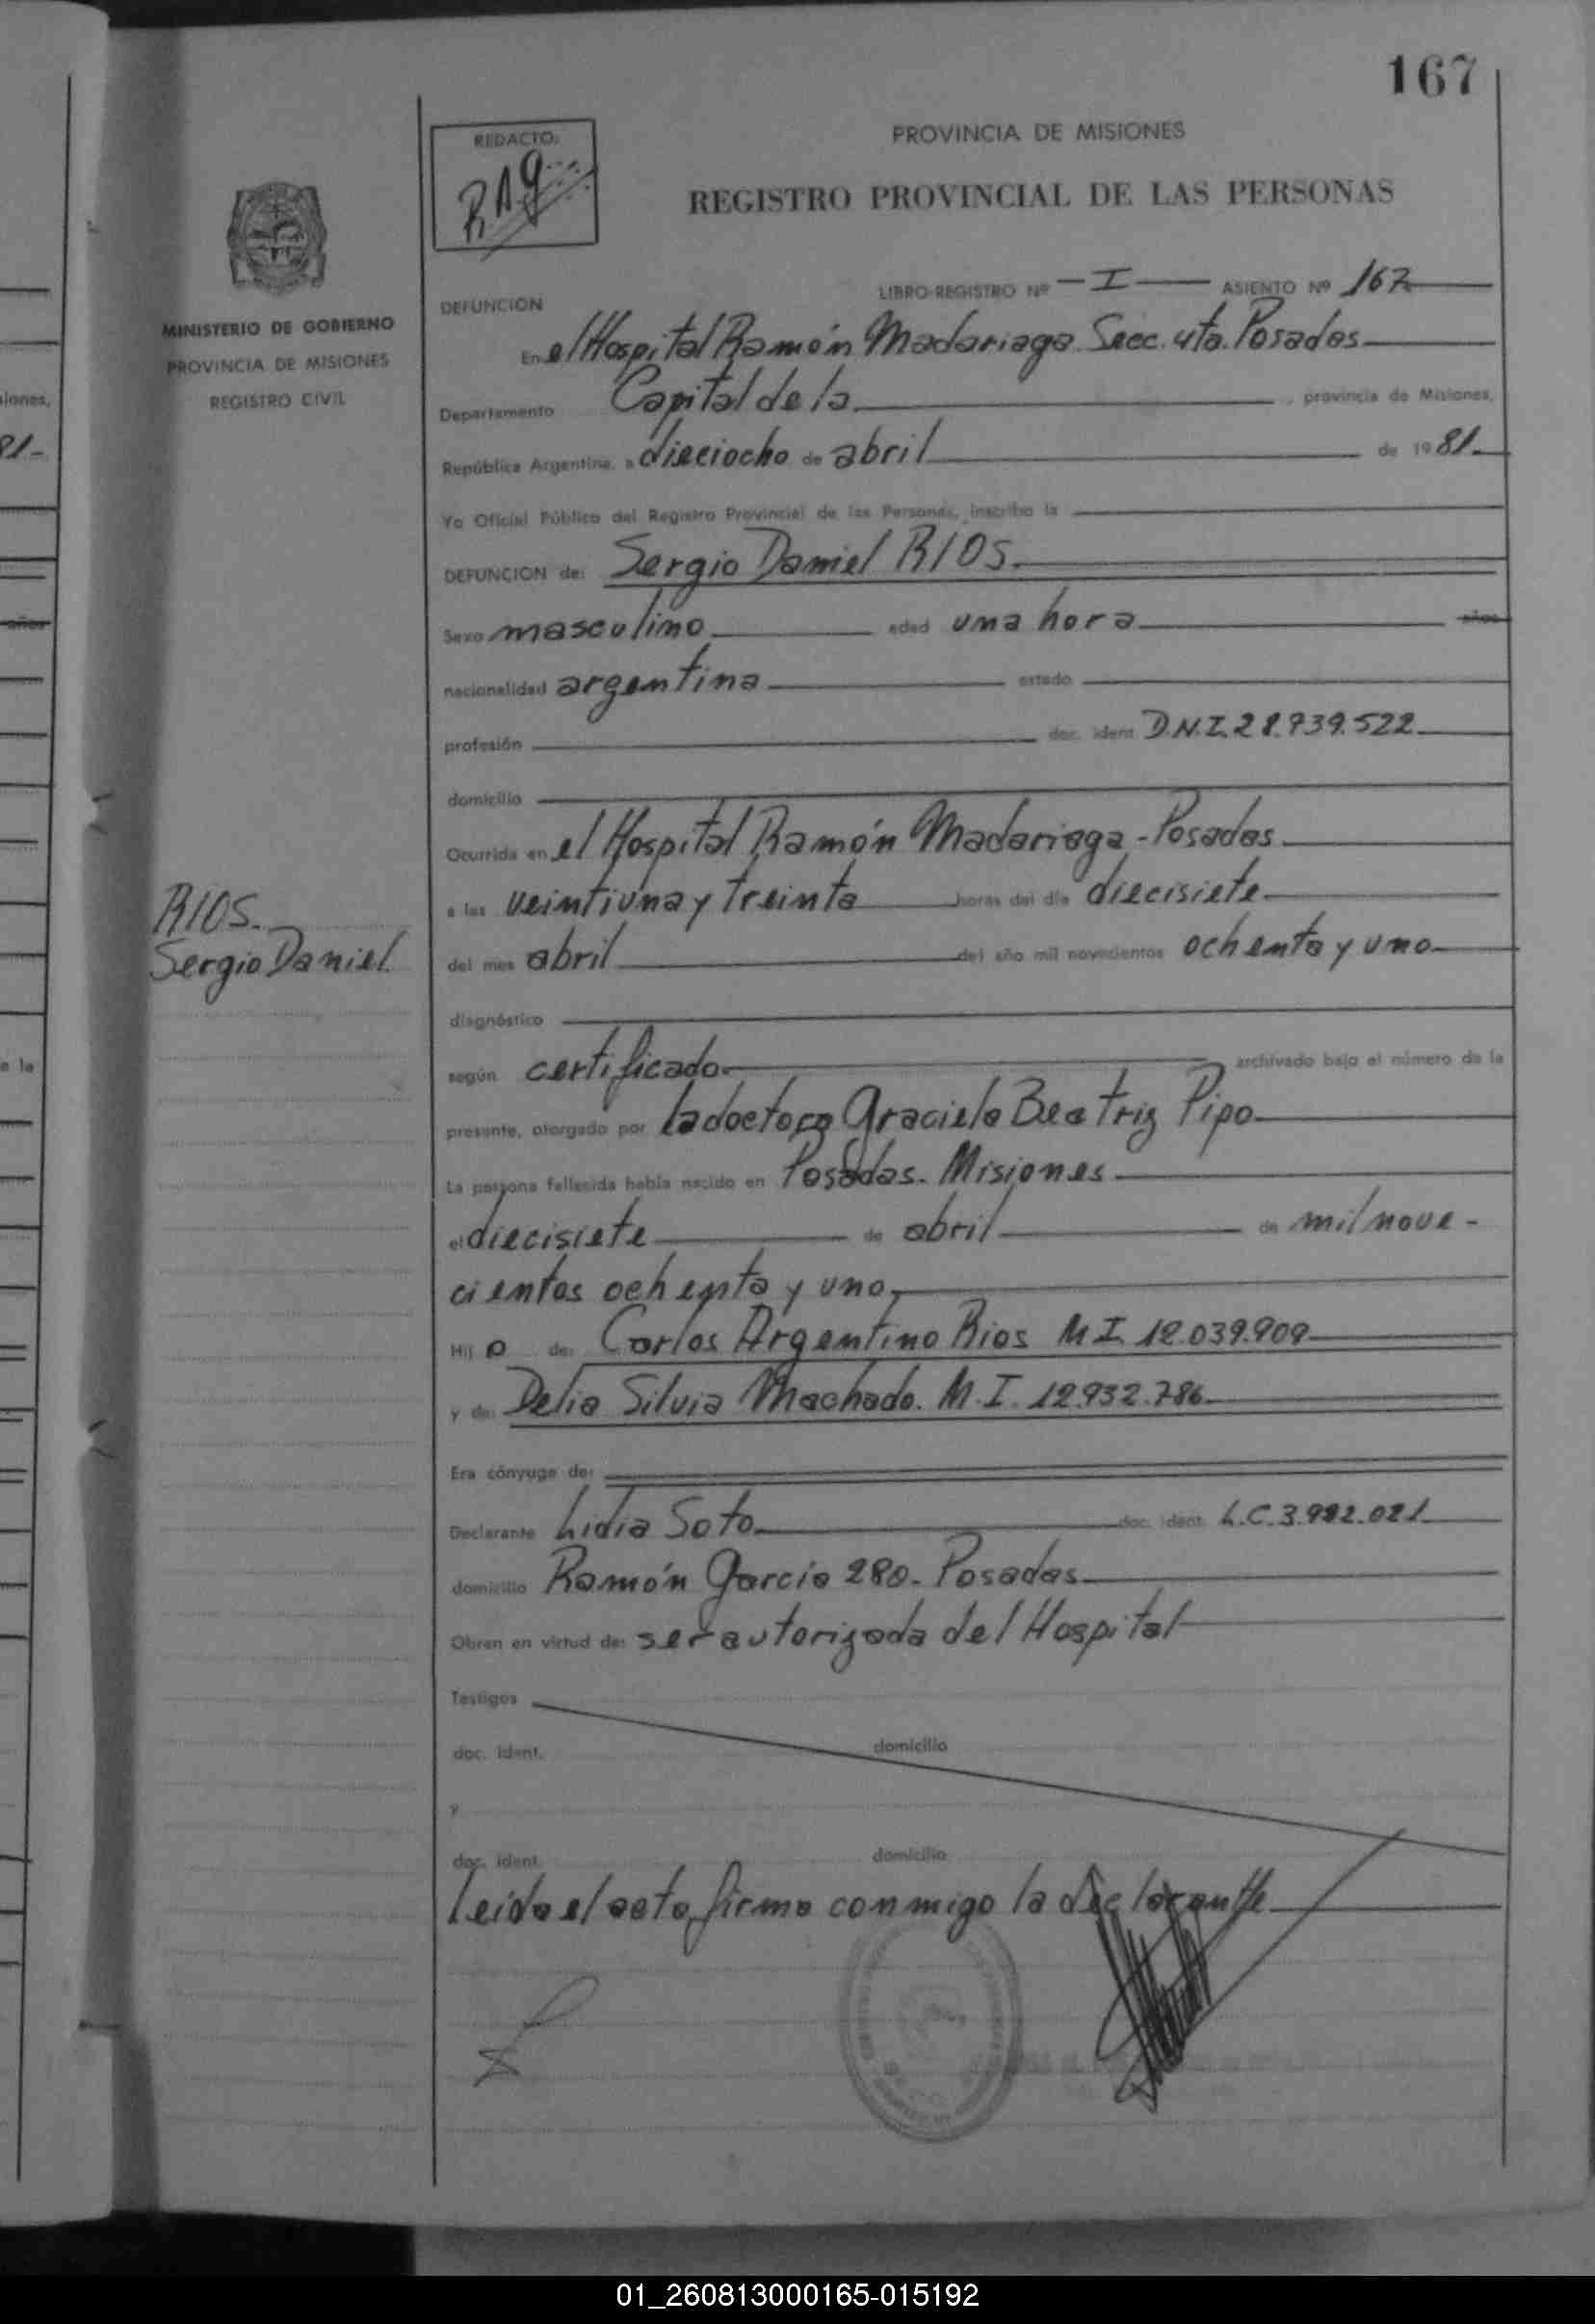 167
REDACTO:
R.A.g
PROVINCIA DE MISIONES
REGISTRO PROVINCIAL DE LAS PERSONAS
MINISTERIO DE GOBIERNO
PROVINCIA DE MISIONES
REGISTRO CIVIL
LIBRO-REGISTRO Nº - I - ASIENTO Nº 167
DEFUNCION
En el Hospital Ramón Madariaga Secc. 4ta. Posadas
Departamento Capital de la , provincia de Misiones,
República Argentina, a dieciocho de abril de 1981
Yo Oficial Público del Registro Provincial de las Personas, inscribo la
DEFUNCION de: Sergio Daniel RIOS.
Sexo masculino edad una hora años
nacionalidad argentina estado
profesión doc. ident. D.N.I. 28.739.522
domicilio
Ocurrida en el Hospital Ramón Madariaga - Posadas
a las veintiuna y treinta horas del día diecisiete
RIOS.
Sergio Daniel
del mes abril del año mil novecientos ochenta y uno
diagnóstico
según certificado archivado bajo el número de la
presente, otorgado por la doctora Graciela Beatriz Pipo
La persona fallecida había nacido en Posadas. Misiones
el diecisiete de abril de mil nove-
cientos ochenta y uno,
Hij o de: Carlos Argentino Rios M.I. 12.039.909
y de: Delia Silvia Machado. M.I. 12.932.786
Era cónyuge de:
Declarante Lidia Soto doc. ident. L.C. 3.992.021
domicilio Ramón Garcia 280. Posadas
Obran en virtud de: ser autorizada del Hospital
Testigos
doc. ident. domicilio
y
doc. ident. domicilio
Leida el acta, firma conmigo la declarante
iones,
81-
años
e la
01_260813000165-015192